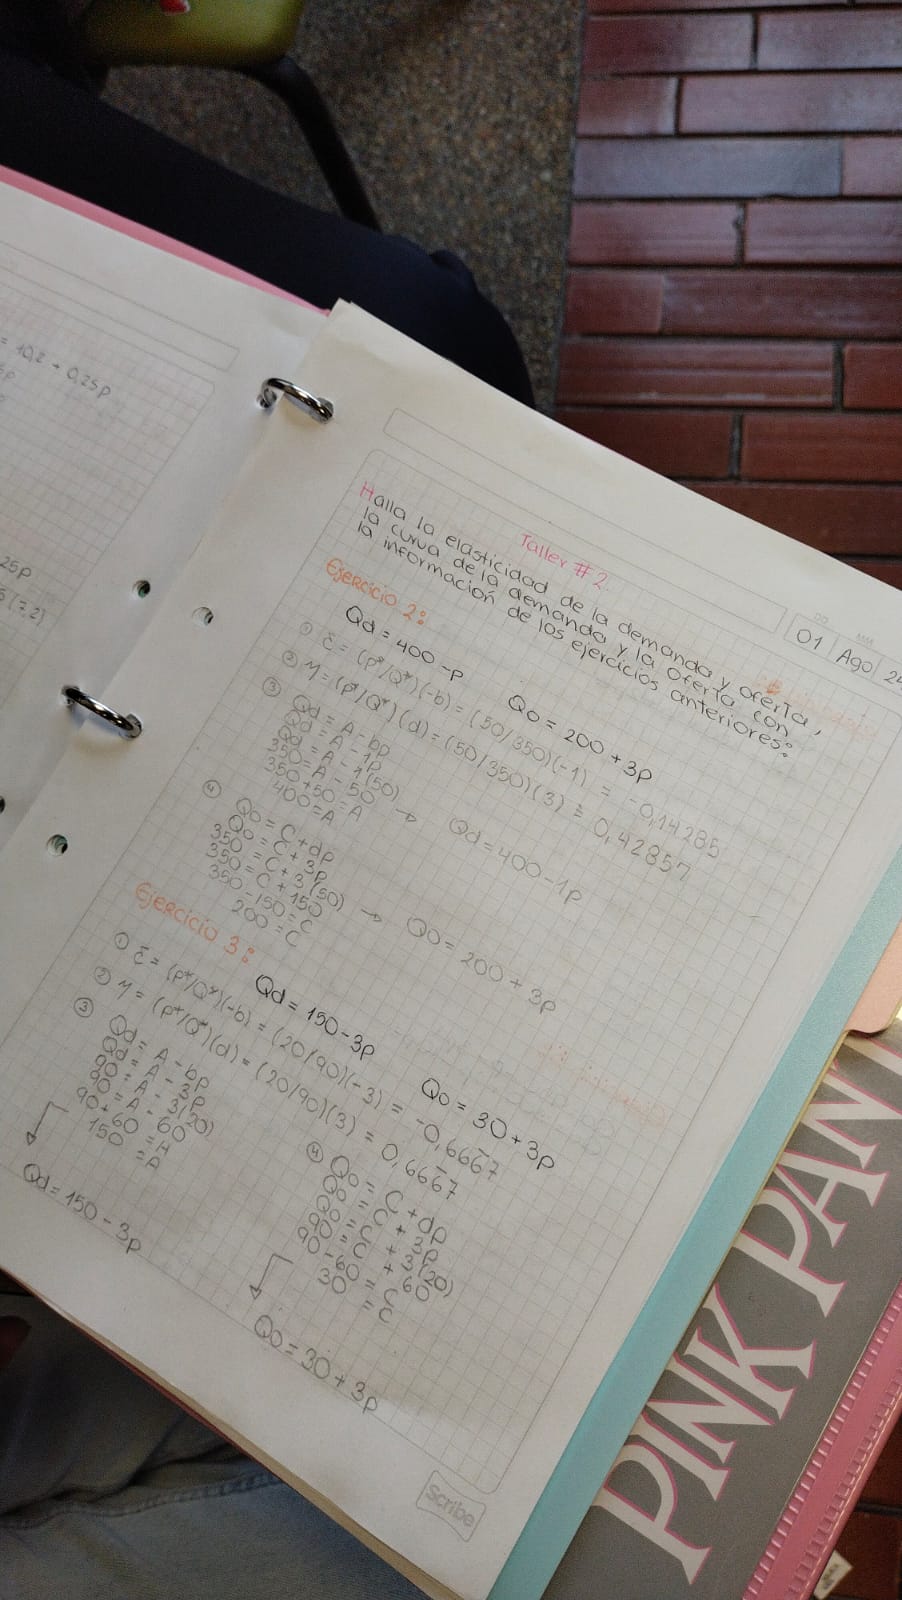 = 10,2 + 0,25p
25p
Taller # 2.
DD MM
01 Ago
Halla la elasticidad de la demanda y oferta,
la curva de la demanda y la oferta con
la información de los ejercicios anteriores:
Ejercicio 2:
Qd = 400 - p Qo = 200 + 3p
① Ɛ = (p*/Q*)(-b) = (50/350)(-1) = -0,14285
② η = (p*/Q*)(d) = (50/350)(3) = 0,42857
③ Qd = A - bp
Qd = A - 1p
350 = A - 1(50)
350 = A - 50
350 + 50 = A
400 = A → Qd = 400 - 1p
④ Qo = C + dp
Qo = C + 3p
350 = C + 3(50)
350 = C + 150
350 - 150 = C
200 = C → Qo = 200 + 3p
Ejercicio 3:
Qd = 150 - 3p Qo = 30 + 3p
① Ɛ = (p*/Q*)(-b) = (20/90)(-3) = -0,6667
② η = (p*/Q*)(d) = (20/90)(3) = 0,6667
③ Qd = A - bp
Qd = A - 3p
90 = A - 3(20)
90 = A - 60
90 + 60 = A
150 = A
Qd = 150 - 3p
④ Qo = C + dp
Qo = C + 3p
90 = C + 3(20)
90 = C + 60
90 - 60 = C
30 = C
Qo = 30 + 3p
Scribe
PINK PAN